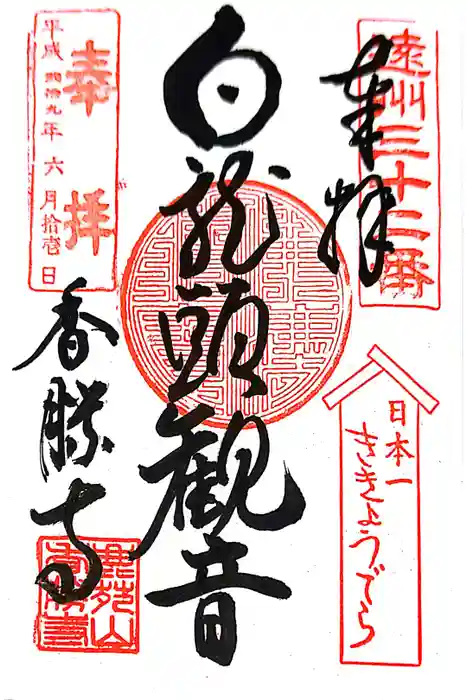 遠州三十三番
奉拝
日本一
ききょうでら
白龍頭観音
奉拝
平成弐拾九年六月拾壱日
香勝寺
鹿苑山
香勝寺